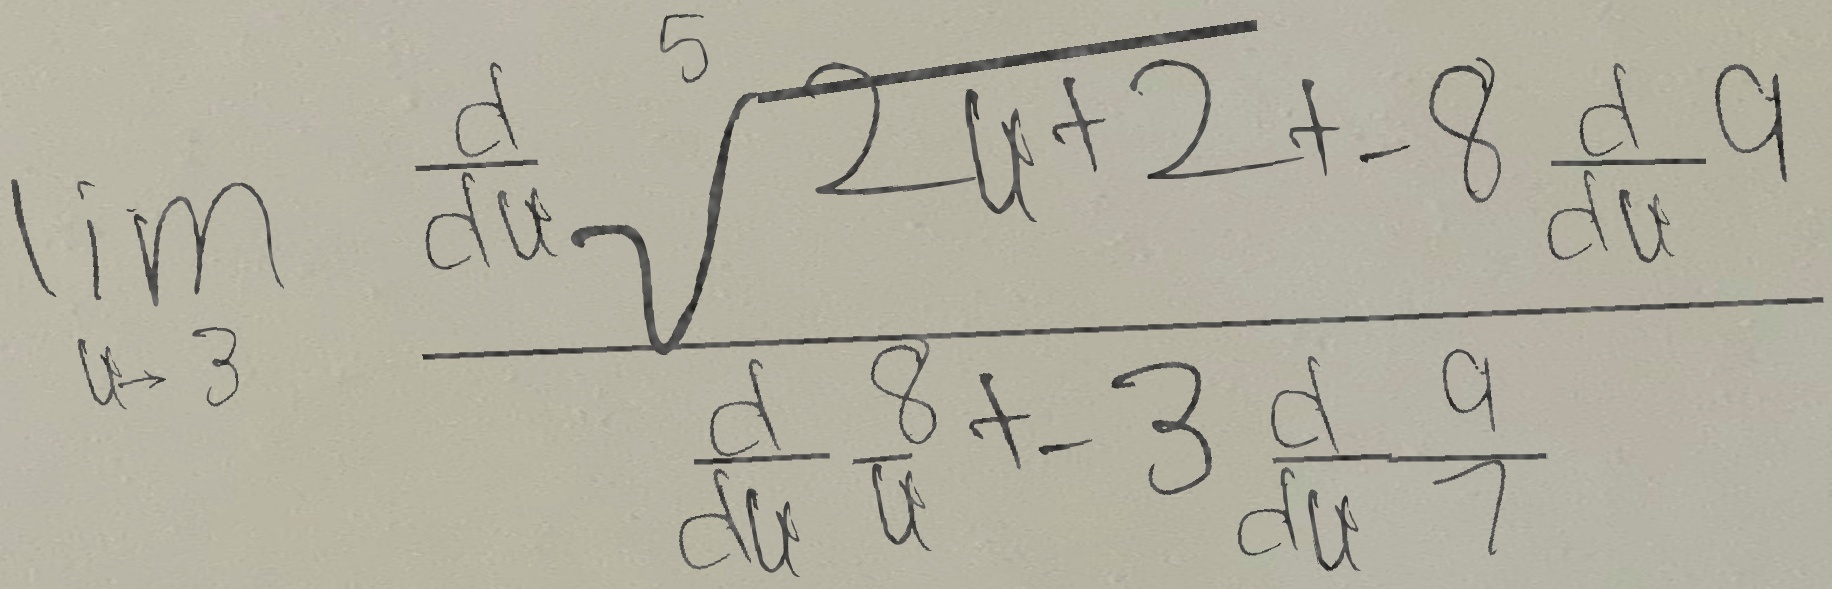 \lim_{u \to 3} \frac{\frac{d}{du} \sqrt[5]{2u+2} + -8 \frac{d}{du} 9}{\frac{d}{du} \frac{8}{u} + -3 \frac{d}{du} \frac{9}{7}}